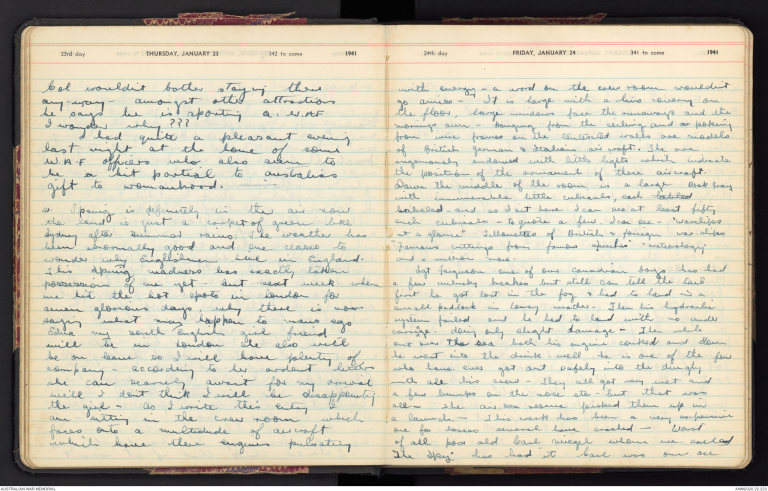 23rd day THURSDAY, JANUARY 23 342 to come 1941
Col wouldn't bother staying there
any-way - amongst other attractions
he says he is sporting a W.A.A.F
I wonder why ???
I had quite a pleasant evening
last night at the home of some
W.A.A.F officers who also seem to
be a bit partial to australias
gift to womanhood.
Spring is definitely in the air now
the land is just a carpet of green like
Sydney after summer rains, the weather has
been abnormally good and one ceases to
wonder why Englishmen live in England.
This spring madness has exactly taken
possession of me yet - but next week when
we hit the hot spots in London for
seven glorious days, why there is no
saying what may happen to mans ego
my south english girl friend
will be in London she also will
be on leave so I will have plenty of
company according to her ardent letters
she can scarcely await for my arrival
well I don't think I will be disappointing
the girl - as I write this entry I
am sitting in the crew room which
faces onto a multitude of aircraft
which have their engines pulsating
24th day FRIDAY, JANUARY 24 341 to come 1941
with energy - a word on the crew room wouldn't
go amiss - It is large with a lino covering on
the floor, large windows face the runways and the
morning sun - Hanging from the ceiling and poking
from wire frames on the walls are models
of British German & Italian aircraft. The are
ingeniously endowed with little lights which indicate
the position of the armament of these aircraft.
Down the middle of the room is a large
with innumerable little cubicals, each
labeled - and as I sit here I can see at least fifty
such cubicals - to quote a few I can see - "Warships
at a glance" Silhouettes of British & foreign warships
"Famous cuttings from famous speeches" "meteorology"
and a million more.
Sgt Ferguson one of our Canadian boys has had
a few unlucky breaks but still can tell the tale
first he got lost in the fog & had to land in a
small paddock in lousy weather. Then his hydraulic
system failed and he had to land with no under
carriage, doing only slight damage - Then while
out over the sea both his engine conked and down
he went into the drink. well he is one of the few
who have ever got out safely into the dinghy
with all his crew - They all got very wet and
a few bumps on the nose etc - but that was
all - the air sea rescue picked them up in
a launch - This week has been a very expensive
one for several have crashed - Worst
of all poor old Carl whom we called
The has had it Carl was our ace
AUSTRALIAN WAR MEMORIAL